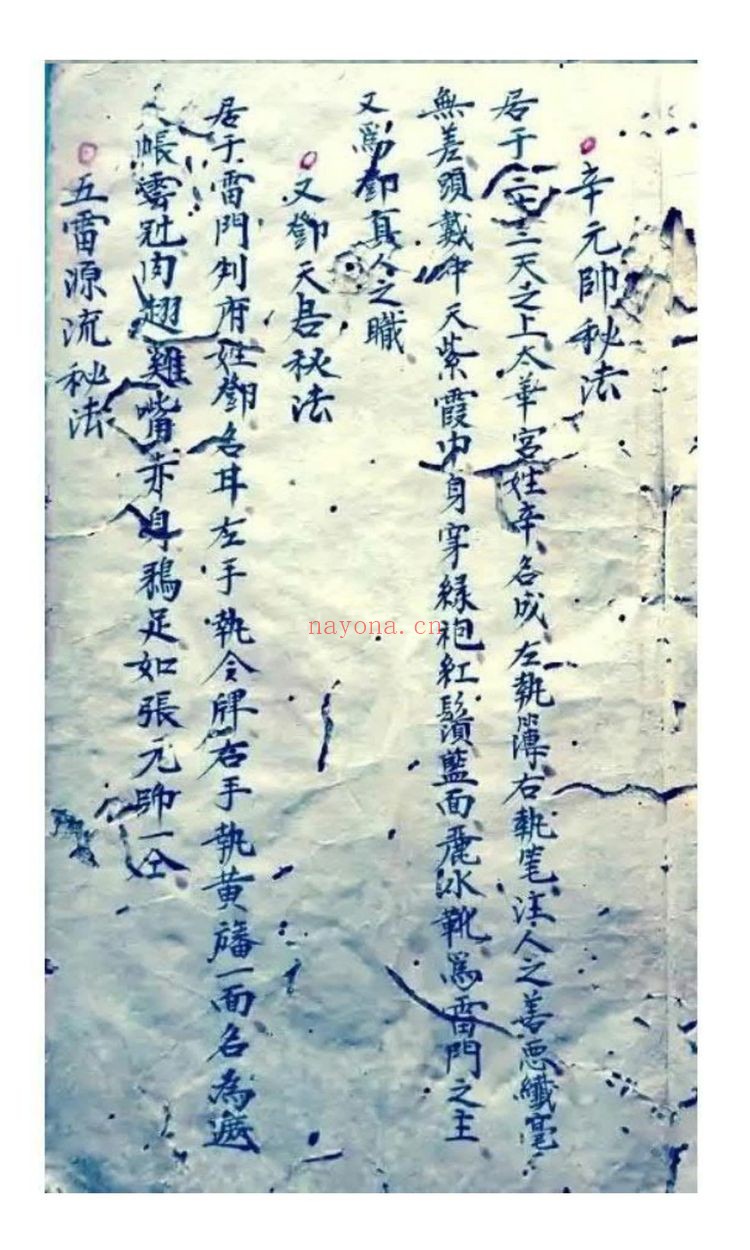 辛元帥秘法
居于三十三天之上太華宮姓辛名成左執簿右執筆注人之善惡纖毫
無差頭戴冲天紫霞巾身穿緑袍紅鬚藍面麂冰靴為雷門之主
又為鄧真人之職
又鄧天君秘法
居于雷門判府姓鄧名耳左手執令牌右手執黄旛一面名為遮
天帳雲肚肉翅雞嘴赤身鴉足如張元帥一仝
五雷源流秘法
nayona.cn